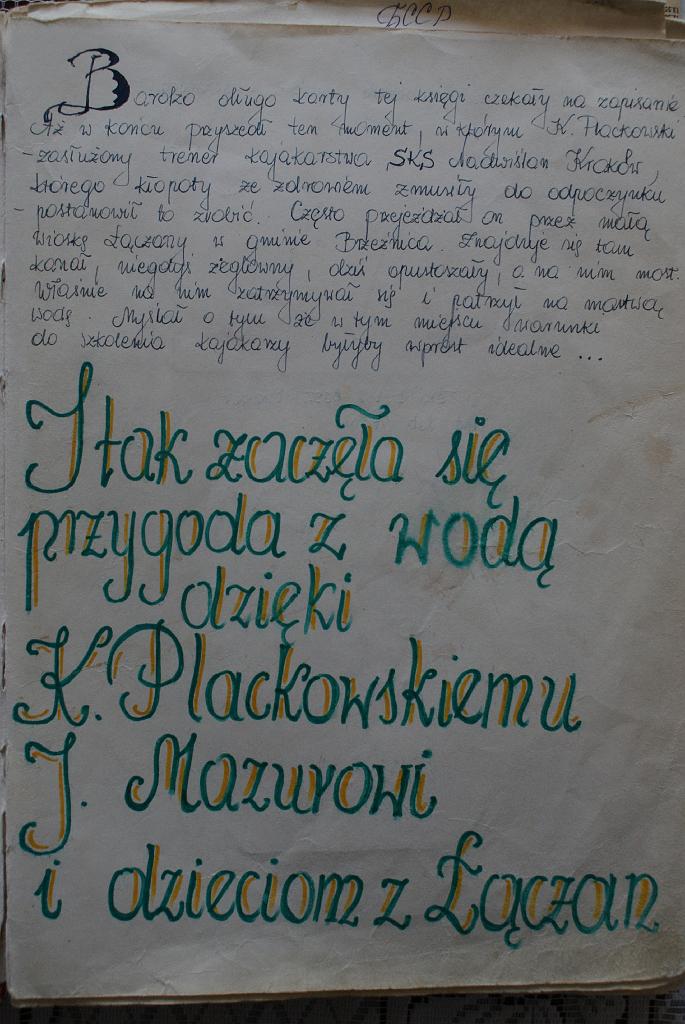 БССР
Bardzo długo karty tej księgi czekały na zapisanie
Aż w końcu przyszedł ten moment, w którym K. Plackowski
- zasłużony trener kajakarstwa SKS Nadwiślan Kraków,
którego kłopoty ze zdrowiem zmusiły do odpoczynku
- postanowił to zrobić. Często przejeżdżał on przez małą
wioskę Łączany w gminie Brzeźnica. Znajduje się tam
kanał, niegdyś żeglowny, dziś opustoszały, a na nim most.
Właśnie na nim zatrzymywał się i patrzył na martwą
wodę. Myślał o tym że w tym miejscu warunki
do szkolenia kajakarzy byłyby wprost idealne ...
I tak zaczęła się
przygoda z wodą
dzięki
K. Plackowskiemu
J. Mazurowi
i dzieciom z Łączan